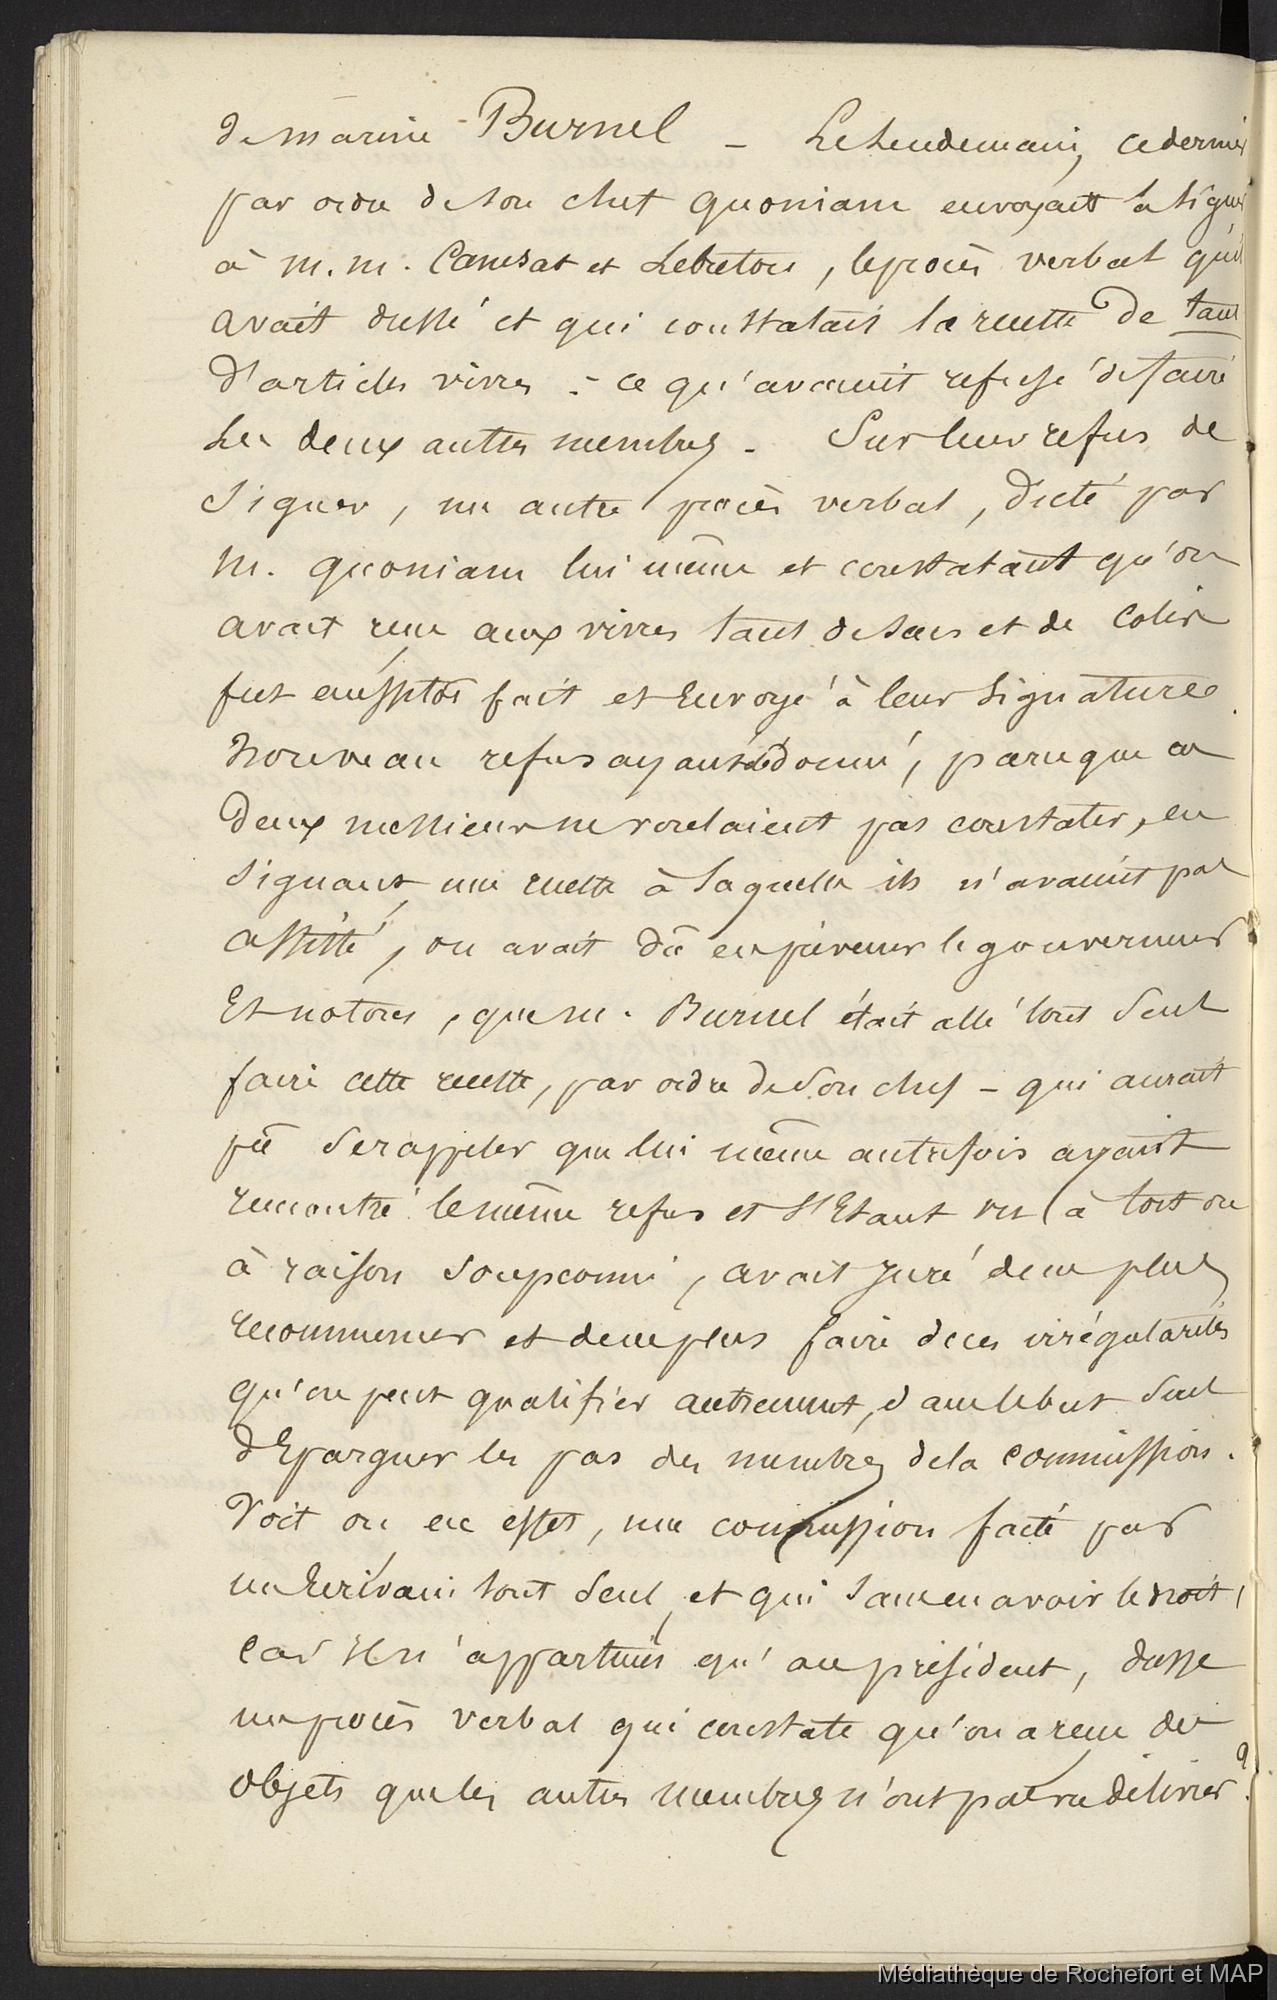 de marine Burnel – Le lendemain, ce dernier
par ordre de son chef Quoniam envoyait à signer
à M.M. Camsat et Lebreton, le procès verbal qu'il
avait dressé et qui constatait la recette de tant
d'articles vivres : ce qu'avaient refusé de faire
les deux autres membres – Sur leur refus de
signer, un autre procès verbal, dicté par
M. Quoniam lui même et constatant qu'on
avait reçu aux vivres tant de sacs et de colis
fut aussitôt fait et Envoyé à leur signature.
Nouveau refus ayant été donné, parce que ces
deux messieurs ne voulaient pas constater, en
signant, une recette à laquelle ils n'avaient pas
assisté, on avait dû en prévenir le gouverneur
Et notons, que M. Burnel était allé tout seul
faire cette recette, par ordre de son chef – qui aurait
pû se rappeler que lui même autrefois ayant
rencontré le même refus et s'Etant vu (à tort ou
à raison soupconné, avait juré de ne plus
recommencer et de ne plus faire de ces irrégularités
qu'on peut qualifier autrement, dans le but seul
d'Epargner les pas des membres de la commission.
Voit on en effet, une commission faite par
un Ecrivain tout seul, et qui sans en avoir le droit,
car Il n'appartient qu'au président, dresse
un procès verbal qui constate qu'on a reçu des
objets que les autres membres n'ont pas vu délivrer ?
Médiathèque de Rochefort et MAP